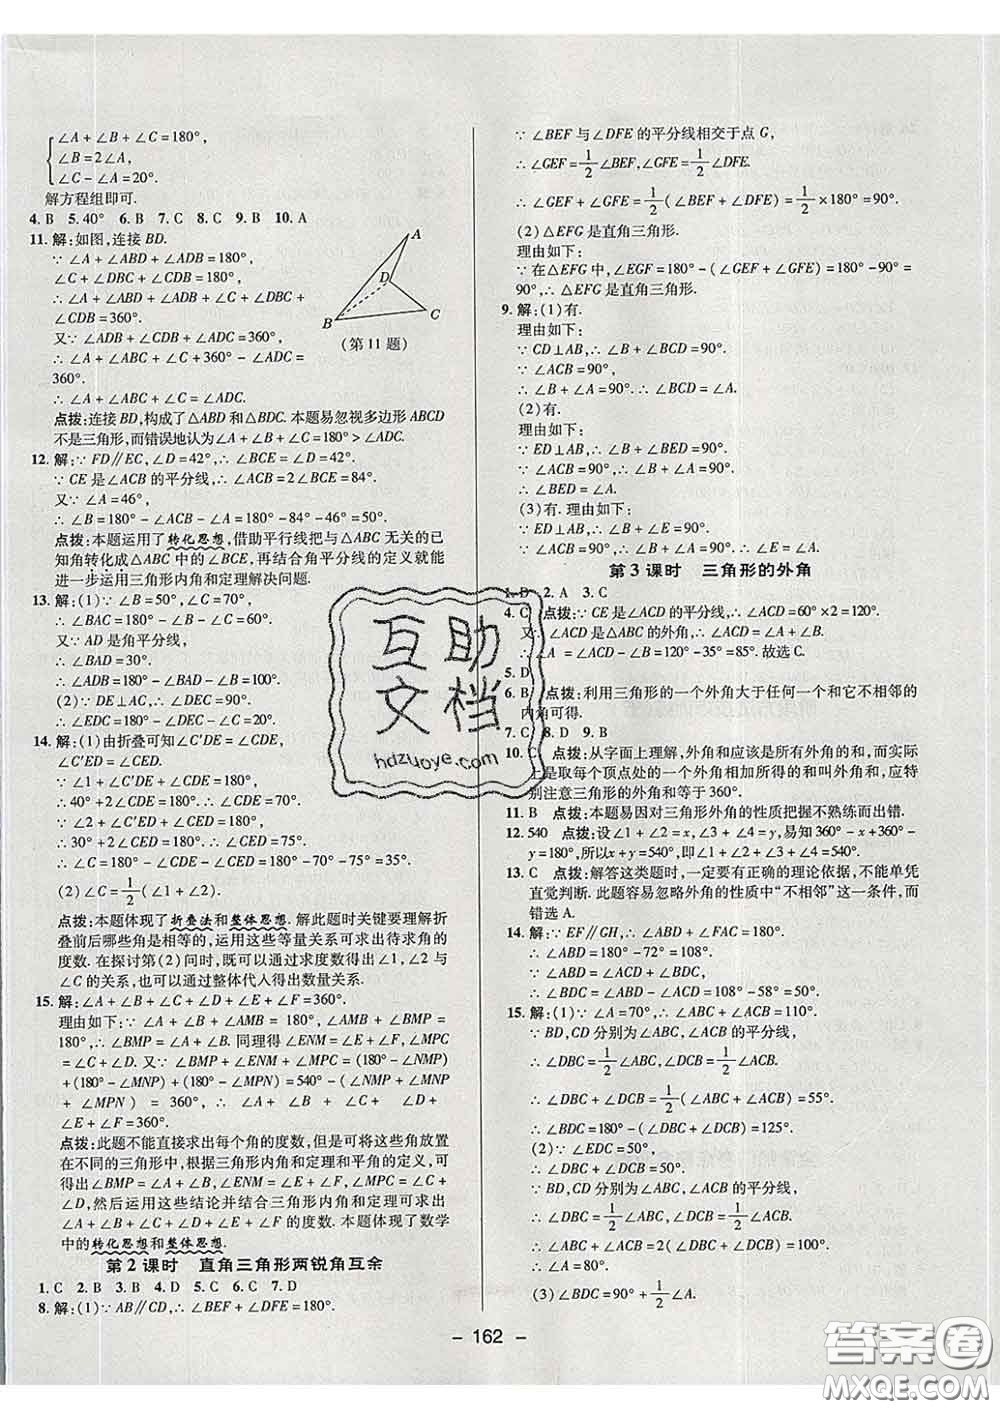 ∠A+∠B+∠C=180°,
∠B=2∠A,
∠C-∠A=20°.
解方程组即可.
4. B 5. 40° 6. B 7. C 8. C 9. B 10. A
11. 解:如图,连接 BD.
∵ ∠A+∠ABD+∠ADB=180°,
∠C+∠DBC+∠CDB=180°,
∴ ∠A+∠ABD+∠ADB+∠C+∠DBC+
∠CDB=360°.
又∵ ∠ADB+∠CDB+∠ADC=360°,
∴ ∠A+∠ABC+∠C+360°-∠ADC=
360°.
∴ ∠A+∠ABC+∠C=∠ADC.
A
D
B
C
(第 11 题)
点拨:连接BD,构成了△ABD 和△BDC. 本题易忽视多边形 ABCD
不是三角形,而错误地认为∠A+∠B+∠C=180°>∠ADC.
12. 解:∵ FD∥EC,∠D=42°,∴ ∠BCE=∠D=42°.
∵ CE 是∠ACB 的平分线,∴ ∠ACB=2∠BCE=84°.
又∵ ∠A=46°,
∴ ∠B=180°-∠ACB-∠A=180°-84°-46°=50°.
点拨:本题运用了转化思想,借助平行线把与∠B 无关的已
知角转化成△ABC 中的∠BCE,再结合角平分线的定义就能
进一步运用三角形内角和定理解决问题.
13. 解:(1)∵ ∠B=50°,∠C=70°,
∴ ∠BAC=180°-∠B-∠C=60°.
又∵ AD 是角平分线,
∴ ∠BAD=30°.
∴ ∠ADB=180°-∠BAD-∠B=100°.
(2)∵ DE⊥AC,∴ ∠DEC=90°.
∴ ∠EDC=180°-∠DEC-∠C=20°.
14. 解:(1)由折叠可知∠C'DE=∠CDE,
∠C'ED=∠CED.
∵ ∠1+∠C'DE+∠CDE=180°,
∴40°+2∠CDE=180°.
∴ ∠CDE=70°.
∵ ∠2+∠C'ED+∠CED=180°,
∴30°+2∠CED=180°,∴ ∠CED=75°.
∴ ∠C=180°-∠CDE-∠CED=180°-70°-75°=35°.
(2)∠C=1/2(∠1+∠2).
点拨:本题体现了折叠法和整体思想. 解此题时关键要理解折
叠前后哪些角是相等的,运用这些等量关系可求出待求角的
度数. 在探讨第(2)问时,既可以通过求度数得出∠1,∠2 与
∠C 的关系,也可以通过整体代人得出数量关系.
15. 解:∠A+∠B+∠C+∠D+∠E+∠F=360°.
理由如下:∵ ∠A+∠B+∠AMB=180°,∠BMP+∠AMB=
180°,∴ ∠BMP=∠A+∠B. 同理得∠ENM=∠E+∠F,∠MPC
=∠C+∠D. 又∵ ∠BMP+∠ENM+∠MPC=(180°-∠NMP)
+(180°-∠MNP)+(180°-∠MPN)=540°-(∠NMP+∠MNP
+∠MPN)=360°,∴ ∠A+∠B+∠C+∠D+
∠E+∠F=360°.
点拨:此题不能直接求出每个角的度数,但是可将这些角放置
在不同的三角形中,根据三角形内角和定理和平角的定义,可
得到∠BMP=∠A+∠B,∠ENM=∠E+∠F,∠MPC=∠C+
∠D,然后运用这些结论并结合三角形内角和定理可求出
∠A+∠B+∠C+∠D+∠E+∠F 的度数. 本题体现了数学
中的转化思想和整体思想.
第 2 课时 直角三角形两锐角互余
1. C 2. B 3. B 4. D 5. C 6. C 7. D
8. 解:(1)∵ AB∥CD,∴ ∠BEF+∠DFE=180°.
∵ ∠BEF 与∠DFE 的平分线相交于点 G,
∴ ∠GEF=1/2∠BEF,∠GFE=1/2∠DFE.
∴ ∠GEF+∠GFE=1/2(∠BEF+∠DFE)=1/2×180°=90°.
(2)△EFG 是直角三角形.
理由如下:
∵ 在△EFG 中,∠EGF=180°-(∠GEF+∠GFE)=180°-90°=
90°,∴ △EFG 是直角三角形.
9. 解:(1)有.
理由如下:
∵ CD⊥AB,∴ ∠B+∠BCD=90°.
∵ ∠ACB=90°,
∴ ∠B+∠A=90°. ∴ ∠BCD=∠A.
(2)有.
理由如下:
∵ ED⊥AB,∴ ∠B+∠BED=90°.
∵ ∠ACB=90°,∴ ∠B+∠A=90°.
∴ ∠BED=∠A.
(3)有. 理由如下:
∵ ED⊥AB,∴ ∠B+∠E=90°.
∵ ∠ACB=90°,∴ ∠B+∠A=90°. ∴ ∠E=∠A.
第 3 课时 三角形的外角
1. D 2. A 3. C
4. C 点拨:∵ CE 是∠ACD 的平分线,∴ ∠ACD=60°×2=120°.
又∵ ∠ACD 是△ABC 的外角,∴ ∠ACD=∠A+∠B.
∴ ∠A=∠ACD-∠B=120°-35°=85°. 故选 C.
5. D
6. B 点拨:利用三角形的一个外角大于任何一个和它不相邻的
内角可得.
7. C 8. D 9. B
10. C 点拨:从字面上理解,外角和应该是所有外角的和,而实际
上是取每个顶点处的一个外角相加所得的和叫外角和,应特
别注意三角形的外角和等于 360°.
11. B 点拨:本题易因对三角形外角的性质把握不熟练而出错.
12. 540 点拨:设∠1+∠2=x,∠3+∠4=y,易知360°-x+360°-
y=180°,所以x+y=540°,即∠1+∠2+∠3+∠4=540°.
13. C 点拨:解答这类题时,一定要有正确的理论依据,不能单凭
直觉判断. 此题容易忽略外角的性质中“不相邻”这一条件,而
错选 A.
14. 解:∵ EF∥GH,∴ ∠ABD+∠FAC=180°.
∴ ∠ABD=180°-72°=108°.
∵ ∠ABD=∠ACD+∠BDC,
∴ ∠BDC=∠ABD-∠ACD=108°-58°=50°.
15. 解:(1)∵ ∠A=70°,∴ ∠ABC+∠ACB=110°.
∵ BD,CD 分别为∠ABC,∠ACB 的平分线,
∴ ∠DBC=1/2∠ABC,∠DCB=1/2∠ACB.
∴ ∠DBC+∠DCB=1/2(∠ABC+∠ACB)=55°.
∴ ∠BDC=180°-(∠DBC+∠DCB)=125°.
(2)∵ ∠EDC=50°,
∴ ∠DBC+∠DCB=50°.
∵ BD,CD 分别为∠ABC,∠ACB 的平分线,
∴ ∠DBC=1/2∠ABC,∠DCB=1/2∠ACB.
∴ ∠ABC+∠ACB=2(∠DBC+∠DCB)=100°.
∴ ∠A=180°-(∠ABC+∠ACB)=80°.
(3)∠BDC=90°+1/2∠A.
- 162 -
互助
文档
hdzuoye.com
答案圈
MXQE.COM